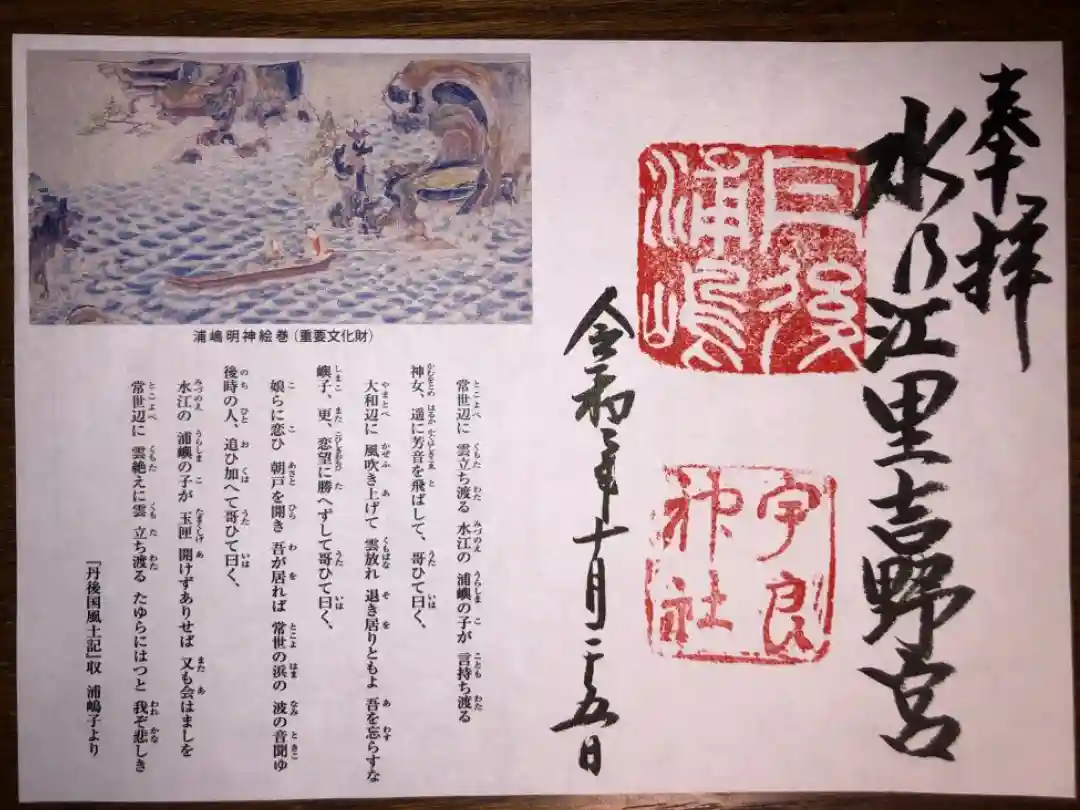 奉拝
水乃江里吉野宮
丹後
浦嶋
宇良
神社
令和三年十月二十五日
浦嶋明神絵巻（重要文化財）
常世辺に 雲立ち渡る 水江の 浦嶼の子が 言持ち渡る
神女、遥に芳音を飛ばして、哥ひて曰く、
大和辺に 風吹き上げて 雲放れ 退き居りともよ 吾を忘らすな
嶼子、更、恋望に勝へずして哥ひて曰く、
娘らに恋ひ 朝戸を開き 吾が居れば 常世の浜の 波の音聞ゆ
後時の人、追ひ加へて哥ひて曰く、
水江の 浦嶼の子が 玉匣 開けずありせば 又も会はましを
常世辺に 雲絶えに雲 立ち渡る たゆらにはつと 我ぞ悲しき
『丹後国風土記』収 浦嶋子より